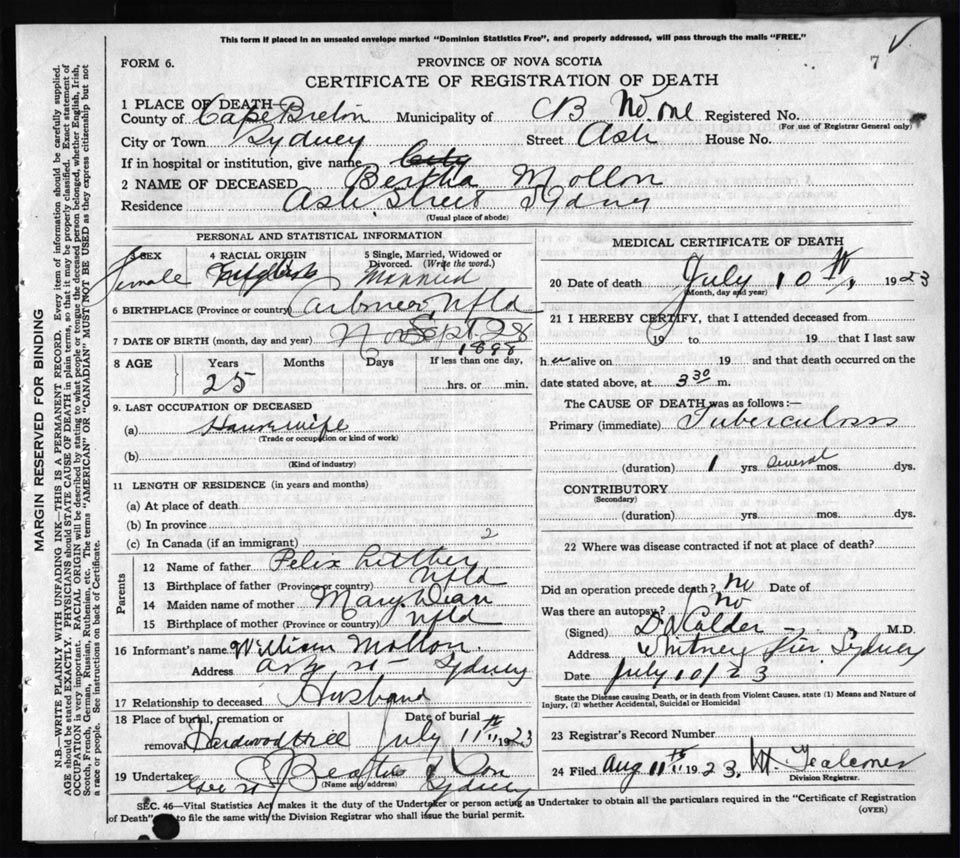 This form if placed in an unsealed envelope marked "Dominion Statistics Free", and properly addressed, will pass through the mails "FREE."
FORM 6.
PROVINCE OF NOVA SCOTIA
7
CERTIFICATE OF REGISTRATION OF DEATH
1 PLACE OF DEATH—
County of Cape Breton Municipality of CB No. one Registered No.
(For use of Registrar General only)
City or Town Sydney Street Ash House No.
If in hospital or institution, give name City
2 NAME OF DECEASED Bertha Mollon
Residence Ash Street Sydney
(Usual place of abode)
PERSONAL AND STATISTICAL INFORMATION
3 SEX 4 RACIAL ORIGIN 5 Single, Married, Widowed or Divorced. (Write the word.)
Female English Married
6 BIRTHPLACE (Province or country) Nfld
7 DATE OF BIRTH (month, day and year) Nov Sept. 28
1898
8 AGE Years Months Days If less than one day,
25 hrs. or min.
9. LAST OCCUPATION OF DECEASED
(a) Housewife
(Trade or occupation or kind of work)
(b)
(Kind of industry)
11 LENGTH OF RESIDENCE (in years and months)
(a) At place of death
(b) In province
(c) In Canada (if an immigrant) 2
Parents
12 Name of father Felix
13 Birthplace of father (Province or country) Nfld
14 Maiden name of mother Mary
15 Birthplace of mother (Province or country) Nfld
16 Informant's name William Mollon
Address Sydney
17 Relationship to deceased Husband
18 Place of burial, cremation or removal Hardwoodhill
Date of burial July 11th 1923
19 Undertaker Beaton &
(Name and address) Sydney
MEDICAL CERTIFICATE OF DEATH
20 Date of death July 10th, 1923
(Month, day and year)
21 I HEREBY CERTIFY, that I attended deceased from
19 to 19 that I last saw
her alive on 19 and that death occurred on the
date stated above, at 3 30 m.
The CAUSE OF DEATH was as follows:—
Primary (immediate) Tuberculosis
(duration) 1 yrs. several mos. dys.
CONTRIBUTORY
(Secondary)
(duration) yrs. mos. dys.
22 Where was disease contracted if not at place of death?
Did an operation precede death? No Date of
Was there an autopsy? No
(Signed) Calder M.D.
Address Whitney Pier, Sydney
Date July 10/23
State the Disease causing Death, or in death from Violent Causes, state (1) Means and Nature of
Injury, (2) whether Accidental, Suicidal or Homicidal
23 Registrar's Record Number
24 Filed Aug 11th 1923.
Division Registrar.
SEC. 46—Vital Statistics Act makes it the duty of the Undertaker or person acting as Undertaker to obtain all the particulars required in the "Certificate of Registration
of Death" to file the same with the Division Registrar who shall issue the burial permit.
(OVER)
MARGIN RESERVED FOR BINDING
N.B.—WRITE PLAINLY WITH UNFADING INK—THIS IS A PERMANENT RECORD. Every item of information should be carefully supplied.
AGE should be stated EXACTLY. PHYSICIANS should STATE CAUSE OF DEATH in plain terms, so that it may be properly classified. Exact statement of
OCCUPATION is very important. RACIAL ORIGIN will be described by stating to what people or tongue the deceased person belonged, whether English, Irish,
Scotch, French, German, Russian, Ruthenian, etc. The terms "AMERICAN" OR "CANADIAN" MUST NOT BE USED as they express citizenship but not
a race or people. See instructions on back of Certificate.